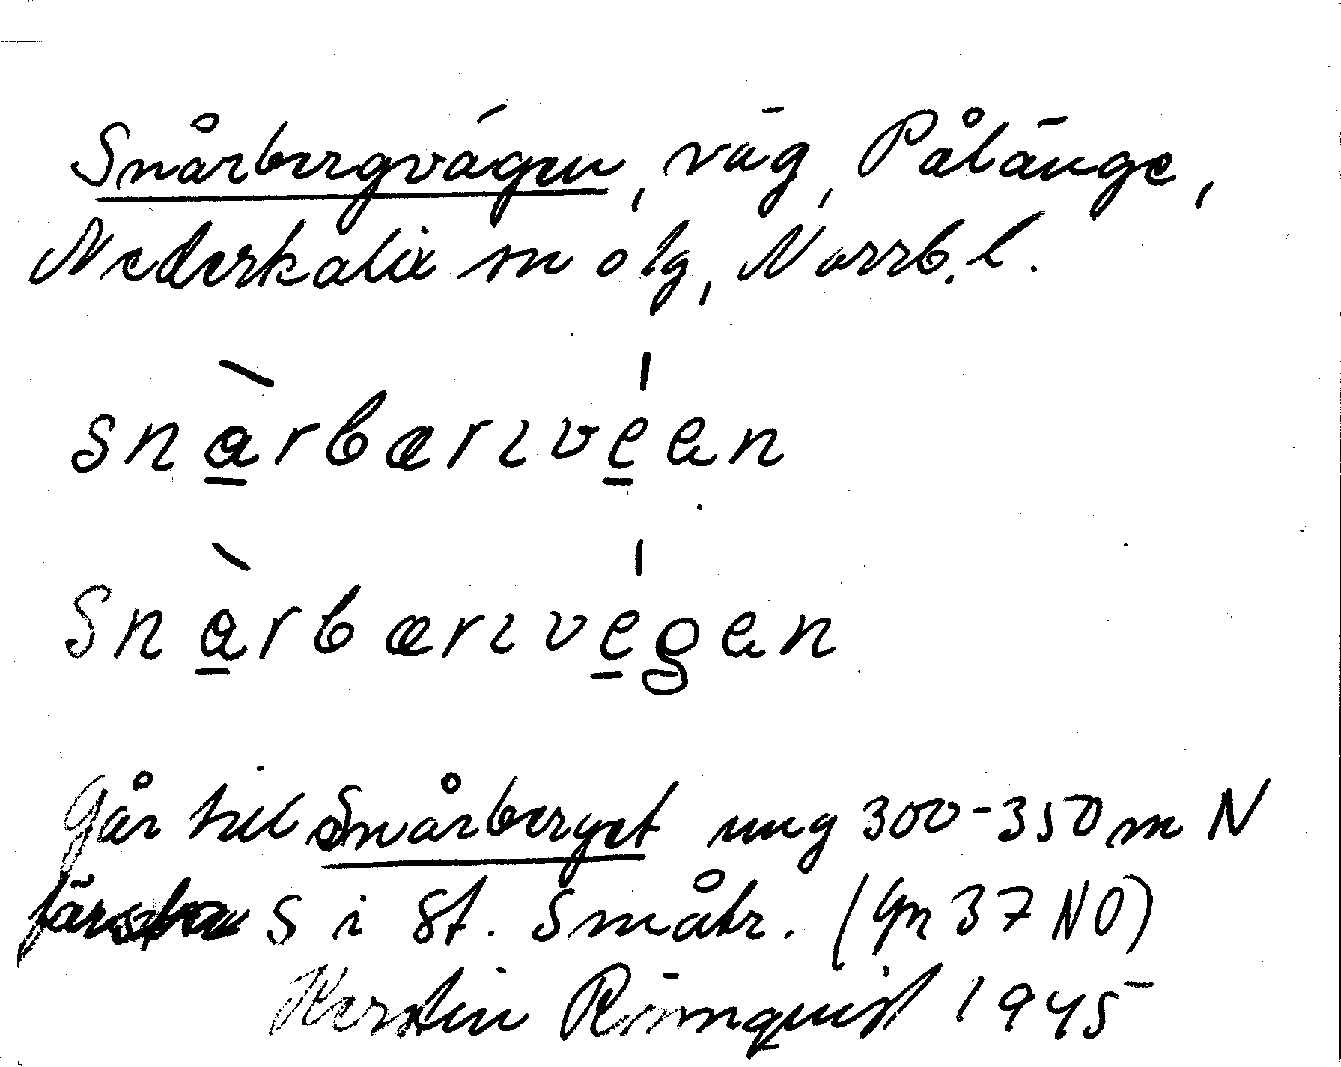 Snårbergvägen, väg, Pålänge,
Nederkalix sn o lg, Norrb. l.
snàrbærıvéen
snàrbærıvégen
Går till Snårberget ung 300-350 m N
S i St. Småtr. (Yn 37 NO)
Kerstin Rönnquist 1945